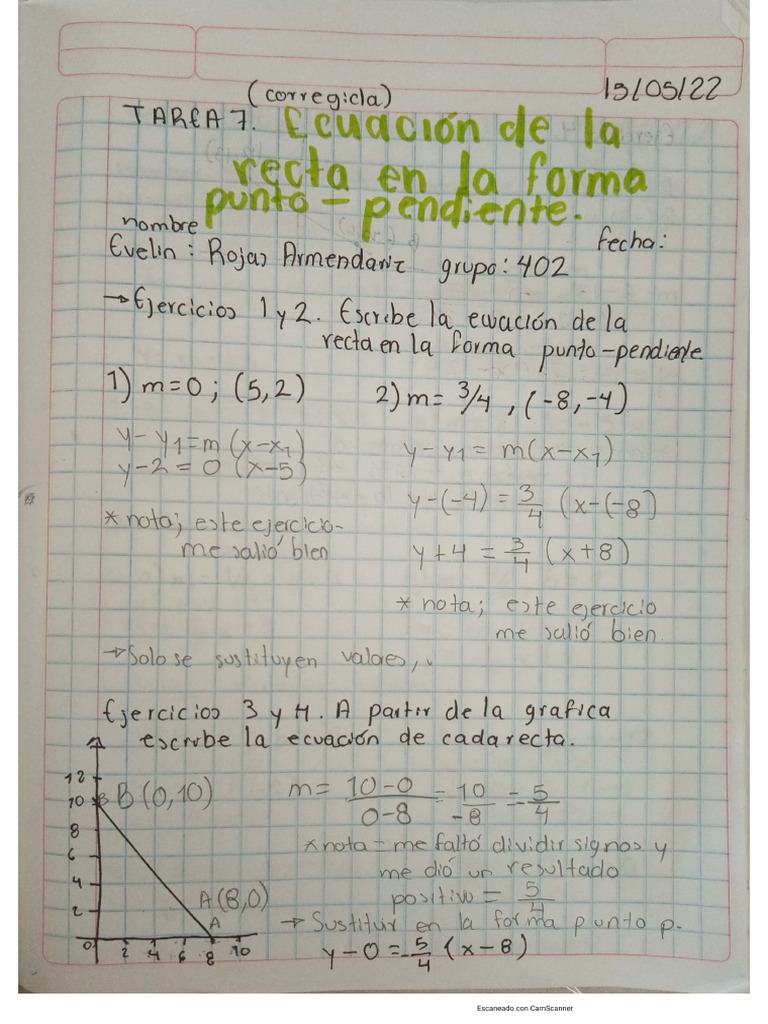 (corregida)
15/05/22
TAREA 7. Ecuación de la
recta en la forma
punto - pendiente.
nombre
fecha:
Evelin: Rojas Armendariz grupo: 402
→ Ejercicios 1 y 2. Escribe la ecuación de la
recta en la forma punto-pendiente
1) m=0; (5,2)
2) m= 3/4, (-8,-4)
y-y1=m(x-x1)
y-2=0 (x-5)
* nota; este ejercicio-
me salió bien
y-y1= m(x-x1)
y-(-4) = 3/4 (x-(-8)
y+4 = 3/4 (x+8)
* nota; este ejercicio
me salió bien.
→ Solo se sustituyen valores,
Ejercicios 3 y 4. A partir de la grafica
escribe la ecuación de cada recta.
12
10
8
6
4
2
0
2 4 6 8 10
B B(0,10)
A(8,0)
A
m= 10-0/0-8 = 10/-8 = -5/4
* nota - me faltó dividir signos y
me dió un resultado
positivo = 5/4
→ Sustituir en la forma punto p.
y-0 = -5/4 (x-8)
Escaneado con CamScanner